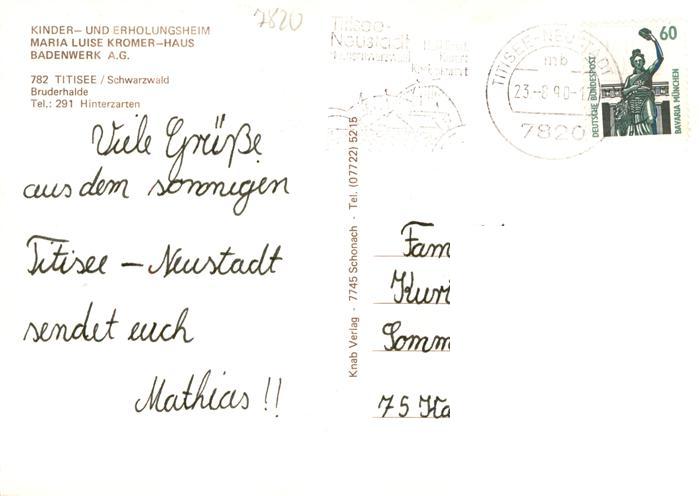 7820
KINDER- UND ERHOLUNGSHEIM
MARIA LUISE KROMER-HAUS
BADENWERK A.G.
782 TITISEE / Schwarzwald
Bruderhalde
Tel.: 291 Hinterzarten
Viele Grüße
aus dem sonnigen
Titisee - Neustadt
sendet euch
Mathias !!
Knab Verlag · 7745 Schonach · Tel. (07722) 5215
Titisee-
Neustadt
TITISEE-NEUSTADT
mb
23.-8.90-
7820
60
DEUTSCHE BUNDESPOST
BAVARIA MÜNCHEN
Fam
Kuri
Somm
75 Ka